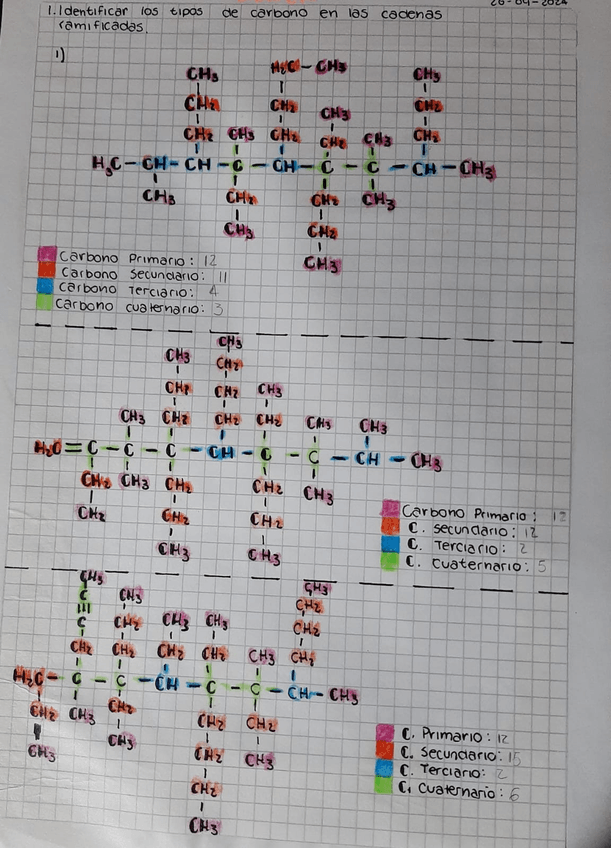 26-04-2024
1. Identificar los tipos de carbono en las cadenas
ramificadas.
1)
CH3 H2C - CH3 CH3
CH2 CH2 CH3 CH2
CH2 CH3 CH2 CH2 CH3 CH2
H3C - CH - CH - C - CH - C - C - CH - CH3
CH3 CH2 CH2 CH3
CH3 CH2
CH3
Carbono Primario: 12
Carbono Secundario: 11
Carbono Terciario: 4
Carbono cuaternario: 3
CH3
CH3 CH2
CH2 CH2 CH3
CH3 CH2 CH2 CH2 CH3 CH3
H2C = C - C - C - CH - C - C - CH - CH3
CH2 CH3 CH2 CH2 CH3
CH2 CH2 CH2
CH3 CH3
Carbono Primario: 12
C. Secundario: 12
C. Terciario: 2
C. Cuaternario: 5
CH3 CH3
C CH3 CH2
≡
C CH2 CH3 CH3 CH2
CH2 CH2 CH2 CH2 CH3 CH2
H2C - C - C - CH - C - C - CH - CH3
CH2 CH3 CH2 CH2 CH2
CH3 CH3 CH2 CH3
CH2
CH3
C. Primario: 12
C. Secundario: 15
C. Terciario: 2
C. Cuaternario: 6